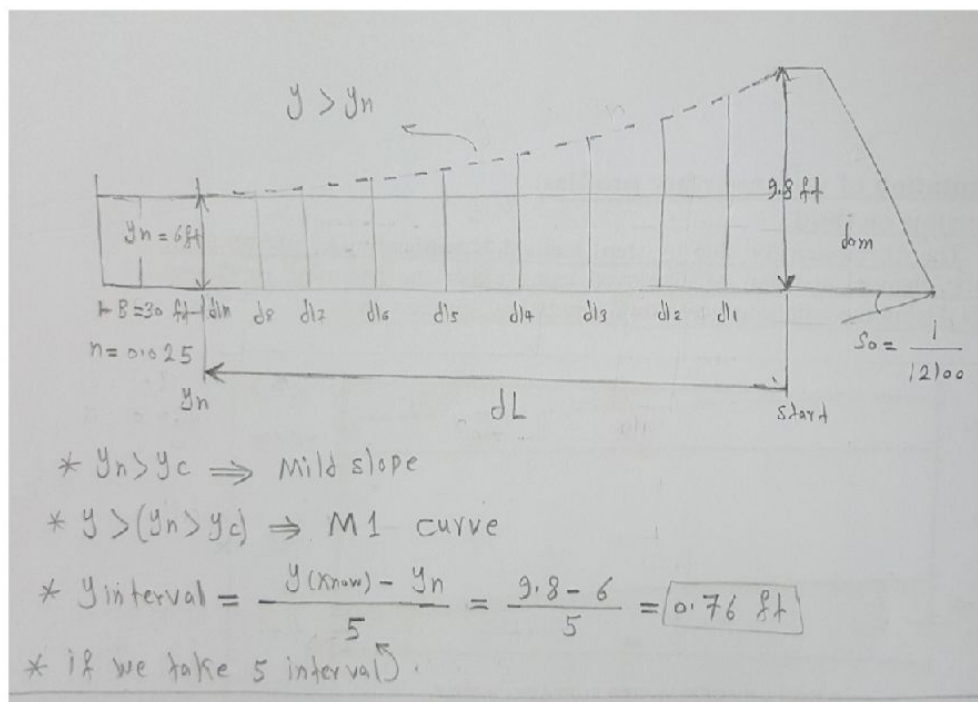 y > yn
9.8 ft
yn = 6ft
dam
B = 30 ft
dln
d8
dl7
dl6
dl5
dl4
dl3
dl2
dl1
n = 0.025
So = 1 / 12100
yn
dL
start
* yn > yc ⇒ Mild slope
* y > (yn > yc) ⇒ M1 curve
* y interval = y(Know) - yn / 5 = 9.8 - 6 / 5 = 0.76 ft
* if we take 5 interval.